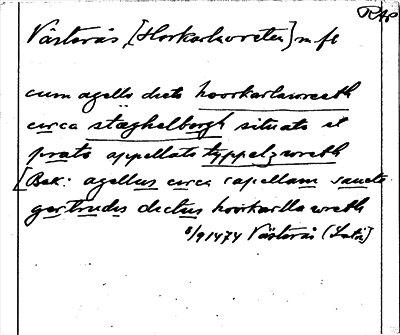 RAP
Västerås, [Horkarlavreten] m fl
cum agello dicto hoorkarlawreeth
circa stæghelbergh situato et
prato appellato typpelzwreth
[Bak: agellus circa capellam sancte
gertrudis dictus hoorkarlla wreth
8/9 1474 Västerås (Latin)